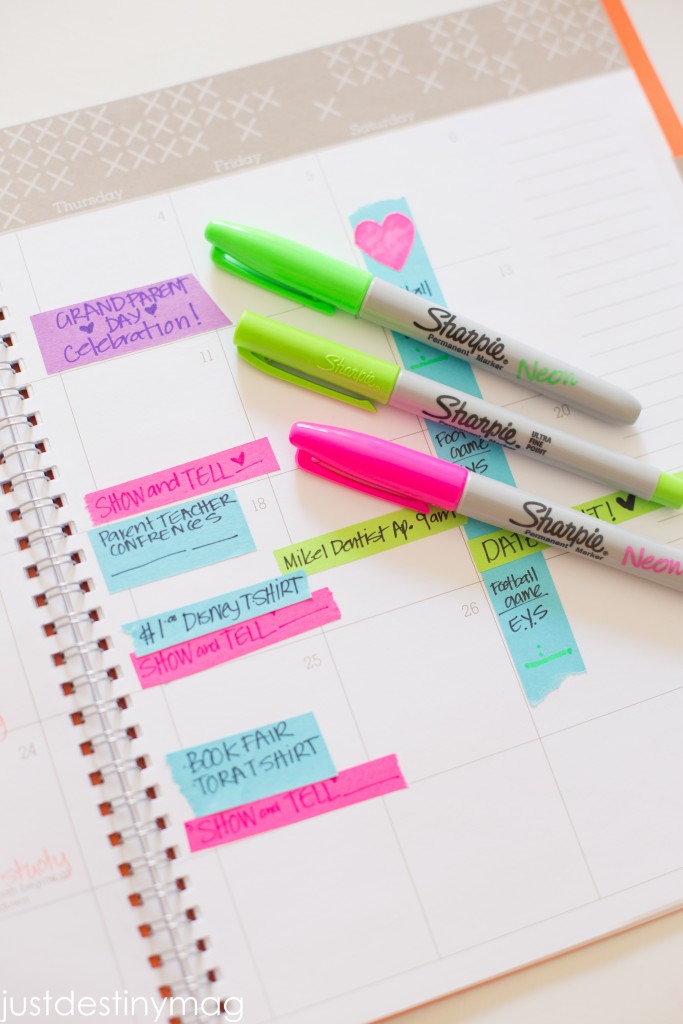 Thursday
Friday
Saturday
4
5
6
GRANDPARENT
DAY
Celebration!
11
13
Sharpie®
Permanent Marker
Neon
Sharpie
Sharpie®
ULTRA
FINE
POINT
20
Football
game
SHOW and TELL
Parent TEACHER
CONFERENCES
18
Mikel Dentist Ap. 9am
DATE
!
Sharpie®
Permanent Marker
Neon
Football
game
E.Y.S
#1 DISNEY TSHIRT
SHOW and TELL
26
25
BOOK FAIR
TORAT SHIRT
SHOW and TELL
24
study
justdestinymag